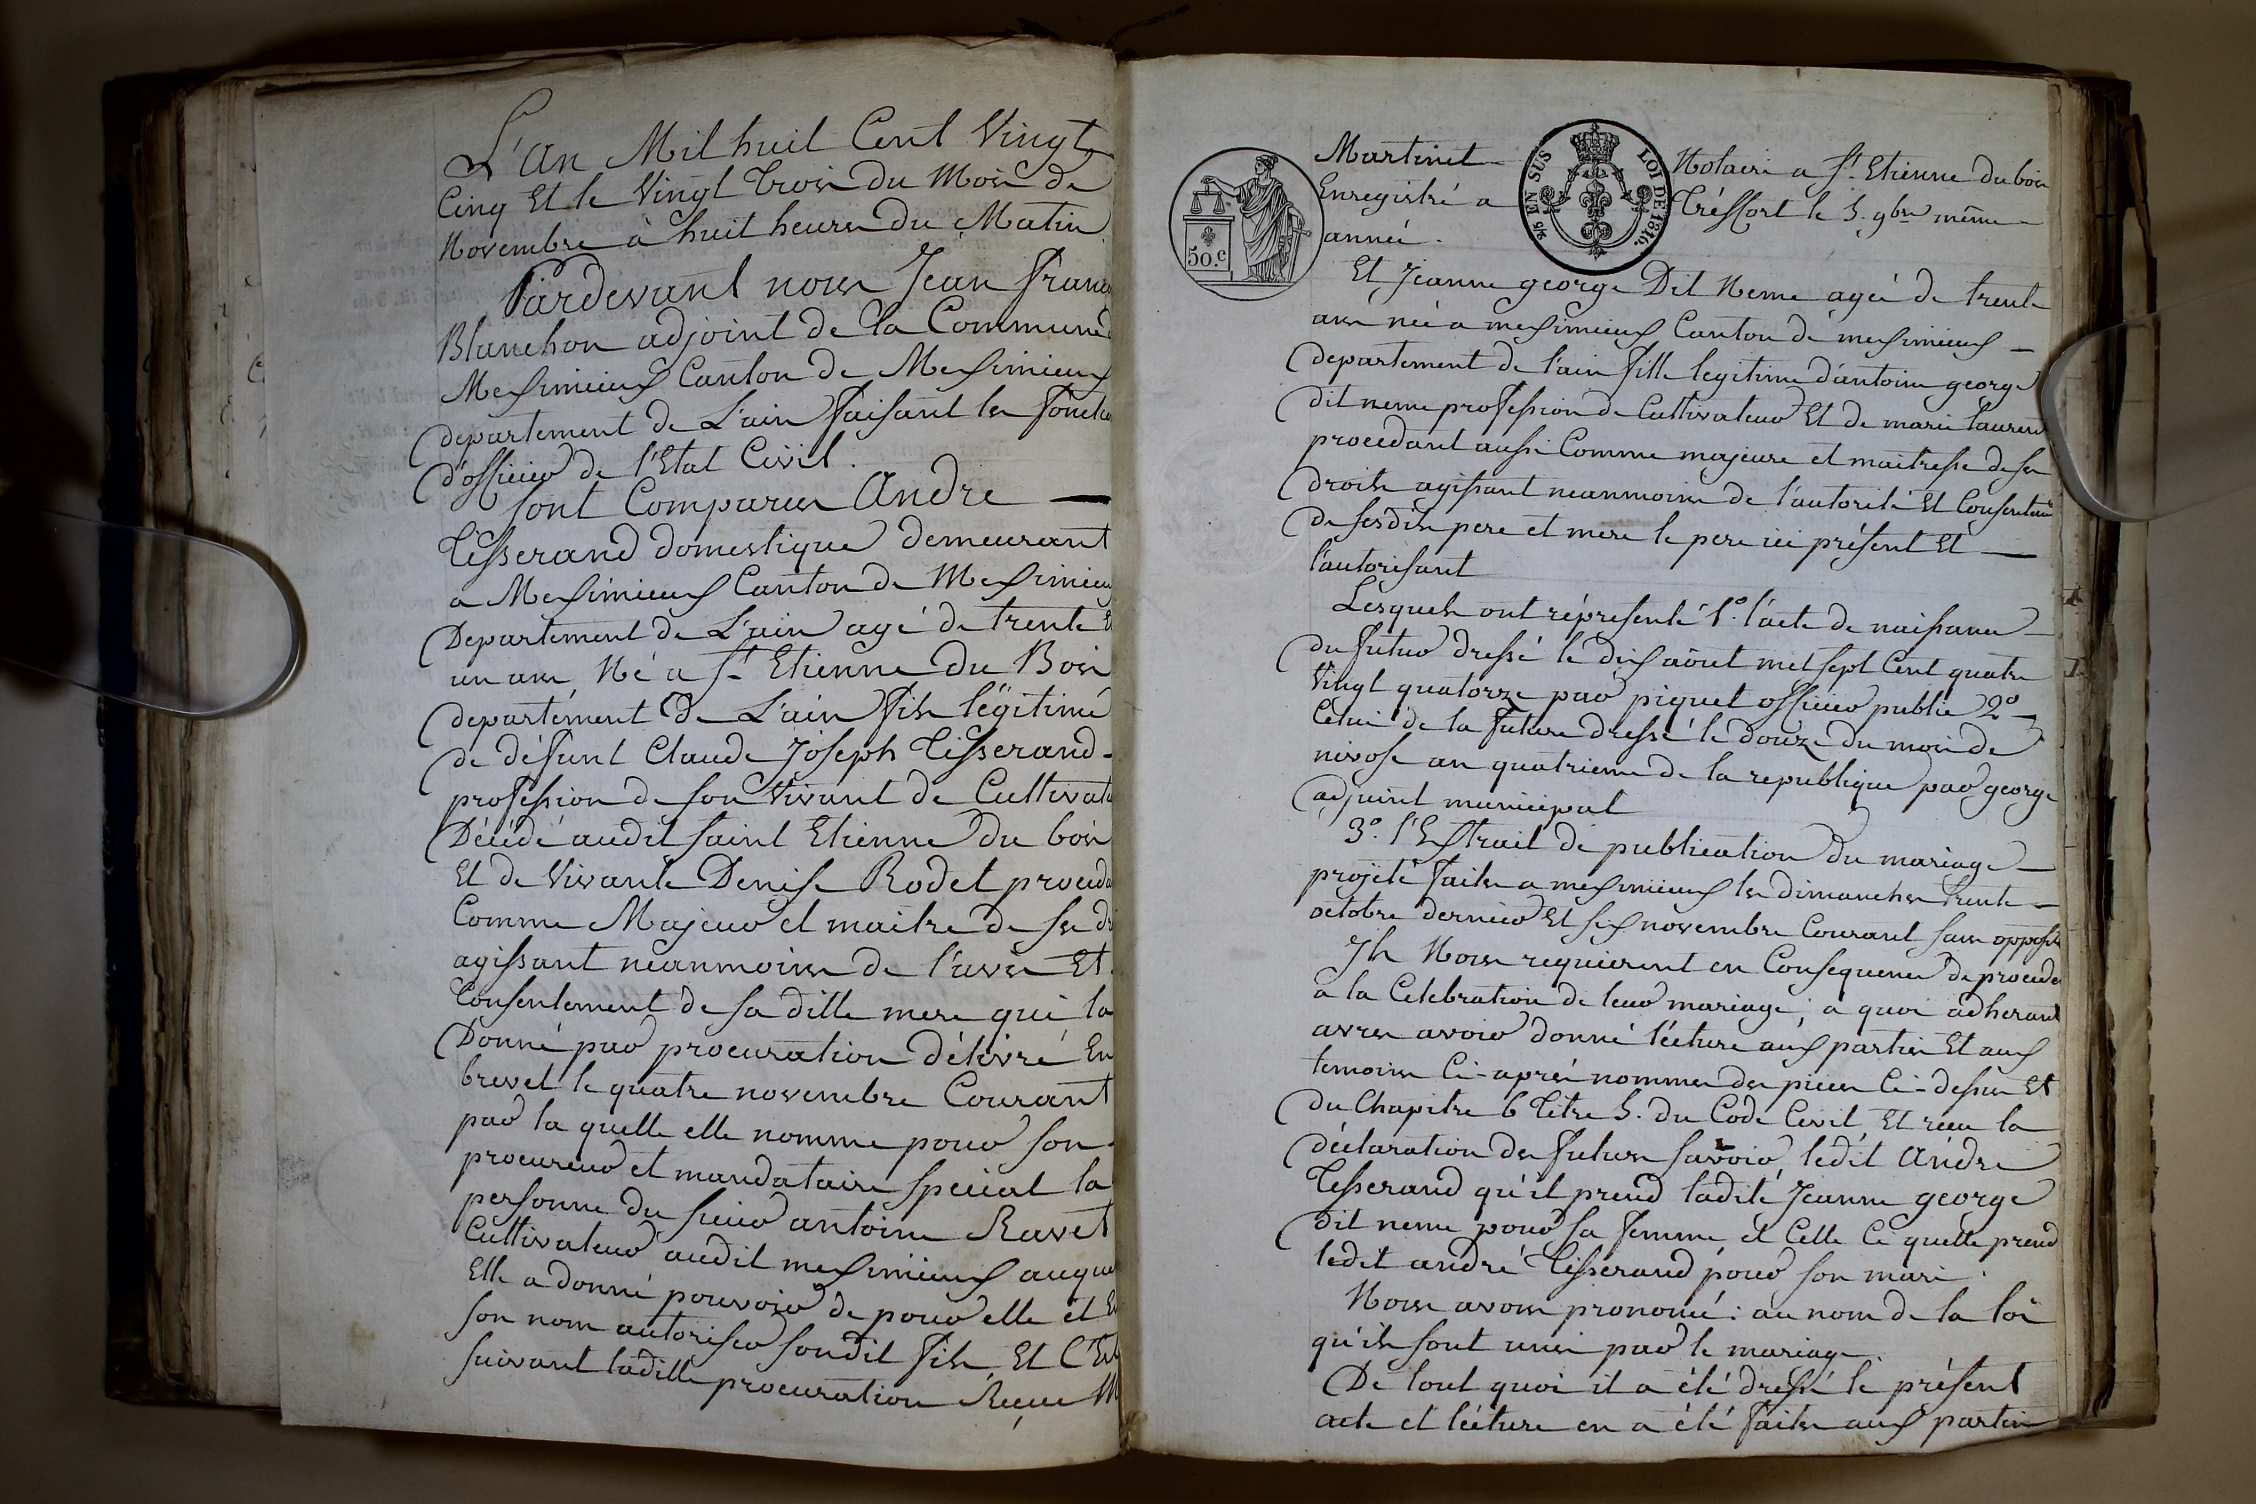 L'an Mil huit Cent Vingt
Cinq Et le Vingt trois du Mois de
Novembre à huit heures du Matin
Pardevant nous Jean Franc
Blanchon adjoint de la Commune d
Meximieux Canton de Meximieux
departement de L'ain faisant les fonct
d'officier de l'Etat Civil.
sont Comparus André
Tisserand domestique demeurant
a Meximieux Canton de Meximieux
Departement de L'ain agé de trente Et
un ans Né a St Etienne du Bois
departément de L'ain fils légitime
de défunt Claude Joseph Tisserand
profession de son Vivant de Cultivat
Décédé audit saint Etienne du bois
Et de Vivante Denise Rodet proceda
Comme Majeur et maitre de ses dr
agissant néanmoins de l'avis Et
Consentement de sa ditte mere qui la
Donné par procuration délivré En
brevet le quatre novembre Courant
par la quelle elle nomme pour son
procureur et mandataire special la
personne du sieur antoine Ravet
Cultivateur audit meximieux auque
Elle a donné pouvoir de pour elle et En
son nom autoriser sondit fils Et C'Est
suivant laditte procuration Reçue M
Martinet Notaire a St Etienne du bois
Enregistré a Tréffort le 5. 9bre même
année.
50.c
25 EN SUS LOI DE 1816.
Et Jeanne george Dit Neme agée de trente
ans née a meximieux Canton de meximieux
departement de l'ain fille legitime d'antoine george
dit neme profession de Cultivateur Et de marie laurent
procedant aussi Comme majeure et maitresse de ses
droits agissant neanmoins de l'autorité Et Consentem
de sesdits pere et mere le pere ici présent Et
l'autorisant
Lesquels ont réprésenté 1°. l'acte de naissance
du futur dressé le dix août mil sept Cent quatre
Vingt quatorze par piquet officier public 2°
Celui de la future dressé le douze du mois de
nivose an quatrieme de la republique par george
adjoint municipal
3°. l'Extrait de publication du mariage
projété faites a meximieux les dimanches trente
octobre dernier Et six novembre Courant sans opposit
Ils Nous requierent en Consequence de procede
a la Celebration de leur mariage; a quoi adherant
avres avoir donné lécture aux parties Et aux
temoins Ci-aprés nommes des pieces Ci-dessus Et
du Chapitre 6 titre 5. du Code Civil Et reçu la
déclaration des futurs savoir, ledit André
Tisserand qu'il prend ladité Jeanne george
dit neme pour sa femme et Celle Ci quelle prend
ledit andré Tisserand pour son mari.
Nous avons prononcé: au nom de la loi
qu'ils sont unis par le mariage.
De tout quoi il a été dressé le présent
acte et lécture en a été faites aux parties